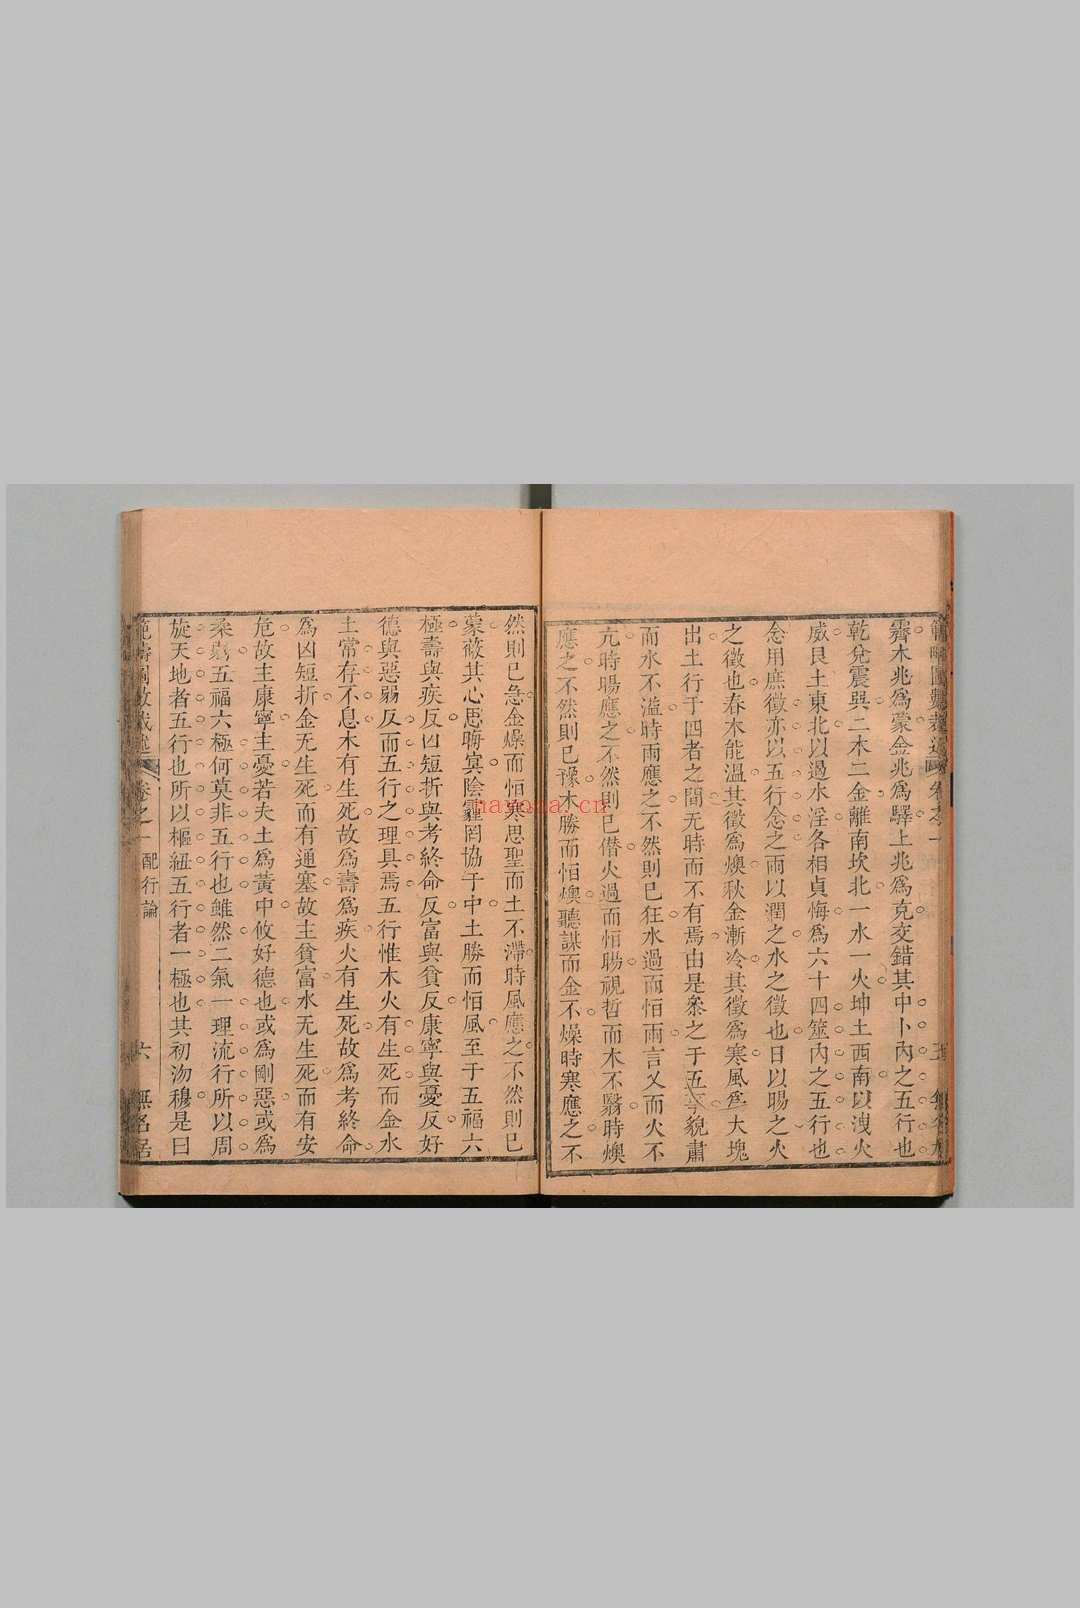 霽木兆爲蒙金兆爲驛土兆爲克交錯其中卜內之五行也
乾兌震與二木二金離南坎北一水一火坤土西南以洩火
威艮土東北以過水淫各相貞悔爲六十四筮內之五行也
念用庶徵亦以五行念之雨以潤之水之徵也日以暘之火
之徵也春木能溫其徵爲燠秋金漸冷其徵爲寒風爲大塊
出土行于四者之間无時而不有焉由是叅之于五事貌肅
而水不溢時雨應之不然則已狂水過而怕雨言乂而火不
亢時暘應之不然則已僭火過而怕暘視哲而木不翳時燠
應之不然則已豫木勝而怕燠聽謀而金不燥時寒應之不
然則已急金燥而怕寒思聖而土不滯時風應之不然則已
蒙蔽其心思晦㝠陰霾罔協于中土勝而怕風至于五福六
極壽與疾反凶短折與考終命反富與貧反康寧與憂反好
德與惡弱反而五行之理具焉五行惟木火有生死而金水
土常存不息木有生死故爲壽爲疾火有生死故爲考終命
爲凶短折金无生死而有通塞故主貧富水无生死而有安
危故主康寧主憂若夫土爲黃中攸好德也或爲剛惡或爲
柔弱五福六極何莫非五行也雖然二氣一理流行所以周
旋天地者五行也所以樞紐五行者一極也其初沕穆是曰
範疇圖數裁述 卷之一 配行論 六 無名居
nayona.cn